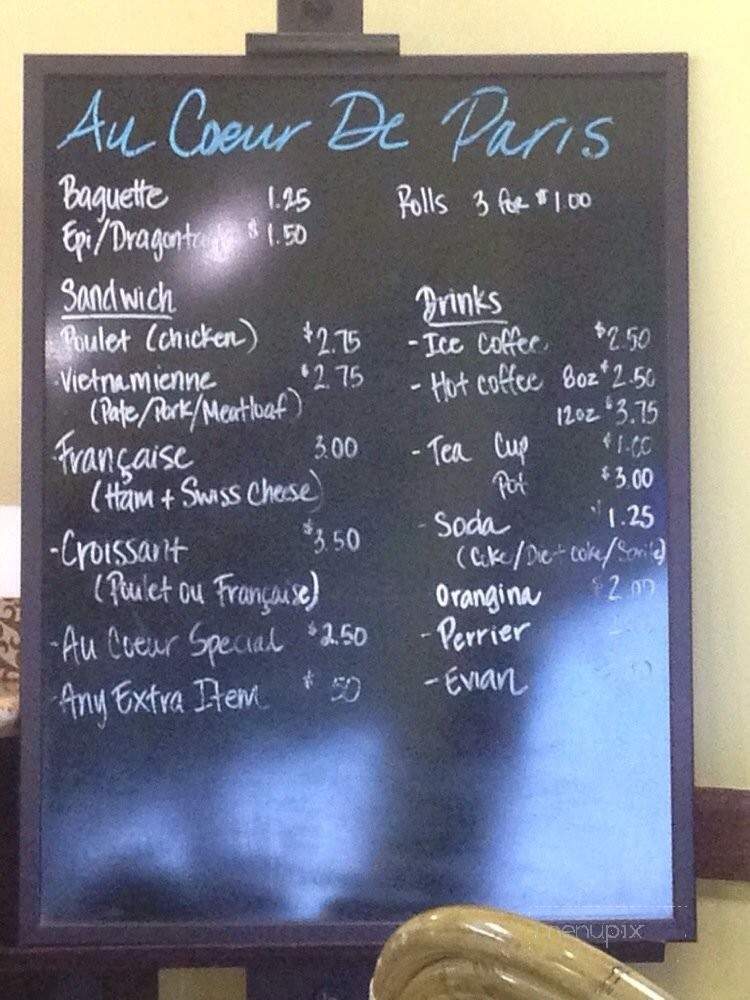 Au Coeur De Paris
Baguette 1.25
Rolls 3 for $1.00
Epi/ $1.50
Sandwich
Poulet (chicken) $2.75
-Vietnamienne $2.75
(Pate/Pork/Meatloaf)
-Française 3.00
(Ham + Swiss Cheese)
-Croissant $3.50
(Poulet ou Française)
-Au Coeur Special $2.50
-Any Extra Item $ 50
Drinks
-Ice coffee $2.50
-Hot coffee 8oz $2.50
12oz $3.75
-Tea Cup $1.00
Pot $3.00
-Soda 1.25
(Coke/Diet coke/
Orangina $2.00
-Perrier
-Evian
menupix